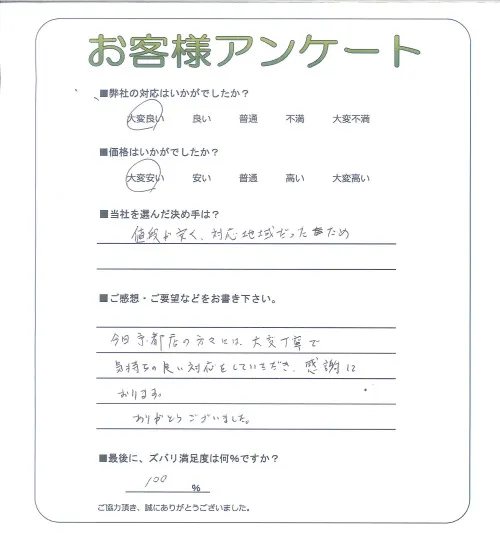 お客様アンケート
■弊社の対応はいかがでしたか？
大変良い 良い 普通 不満 大変不満
■価格はいかがでしたか？
大変安い 安い 普通 高い 大変高い
■当社を選んだ決め手は？
値段が安く、対応地域だったため
■ご感想・ご要望などをお書き下さい。
今回京都店の方々には、大変丁寧で
気持ちの良い対応をしていただき、感謝して
おります。
ありがとうございました。
■最後に、ズバリ満足度は何%ですか？
100 %
ご協力頂き、誠にありがとうございました。